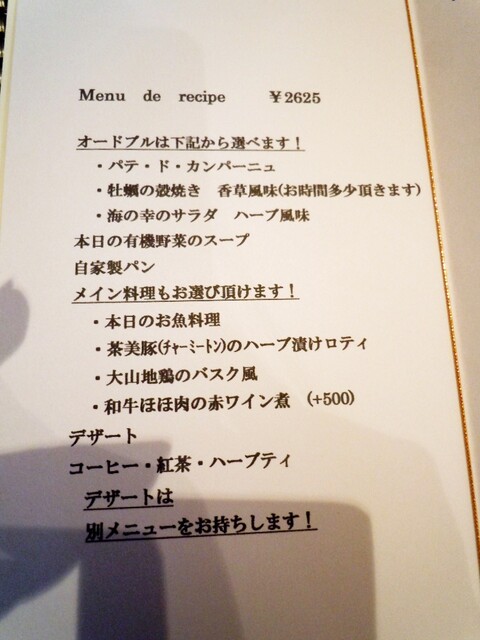 Menu de recipe ￥2625
オードブルは下記から選べます！
・パテ・ド・カンパーニュ
・牡蠣の殻焼き 香草風味(お時間多少頂きます)
・海の幸のサラダ ハーブ風味
本日の有機野菜のスープ
自家製パン
メイン料理もお選び頂けます！
・本日のお魚料理
・茶美豚(ﾁｬｰﾐｰﾄﾝ)のハーブ漬けロティ
・大山地鶏のバスク風
・和牛ほほ肉の赤ワイン煮 (+500)
デザート
コーヒー・紅茶・ハーブティ
デザートは
別メニューをお持ちします！